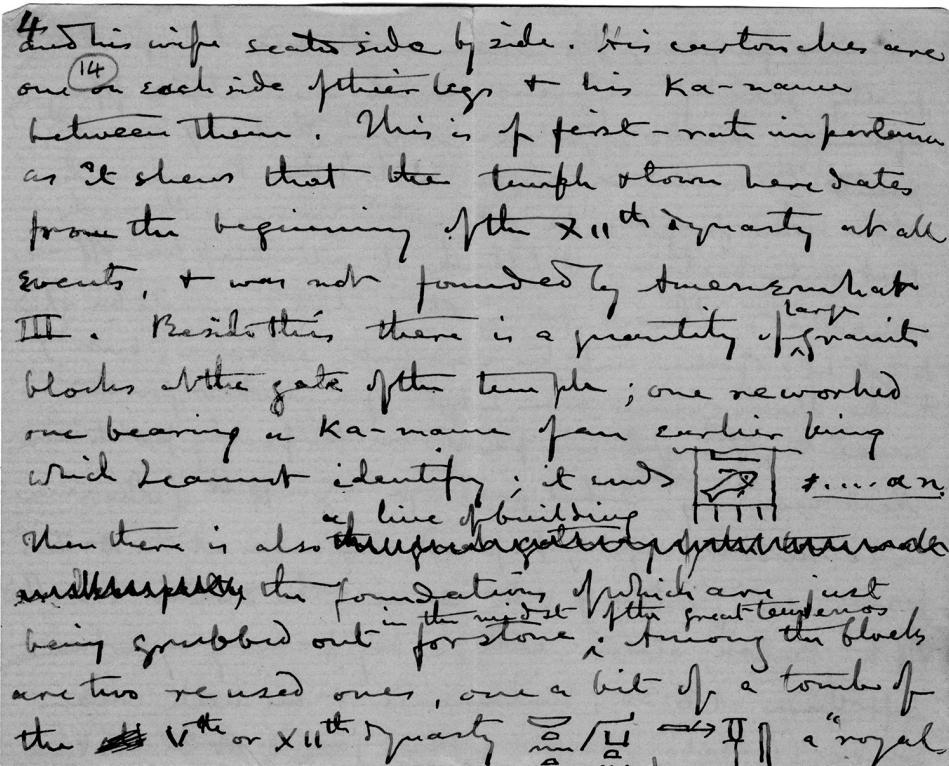 4
and his wife seated side by side. His cartouches are
14
one on each side of their legs + his Ka-name
between them. This is of first-rate importance
as it shews that the temple & town here dates
from the beginning of the XIIth dynasty at all
events, + was not founded by Amenemhat
III. Beside this there is a quantity of large granite
blocks at the gate of the temple; one reworked
one bearing a Ka-name of an earlier king
which I cannot identify; it ends
Then there is also a line of building
the foundations of which are just
being grubbed out for stone in the midst of the great temenos. Among the blocks
are two reused ones, one a bit of a tomb of
the Vth or XIIth dynasty a "royal